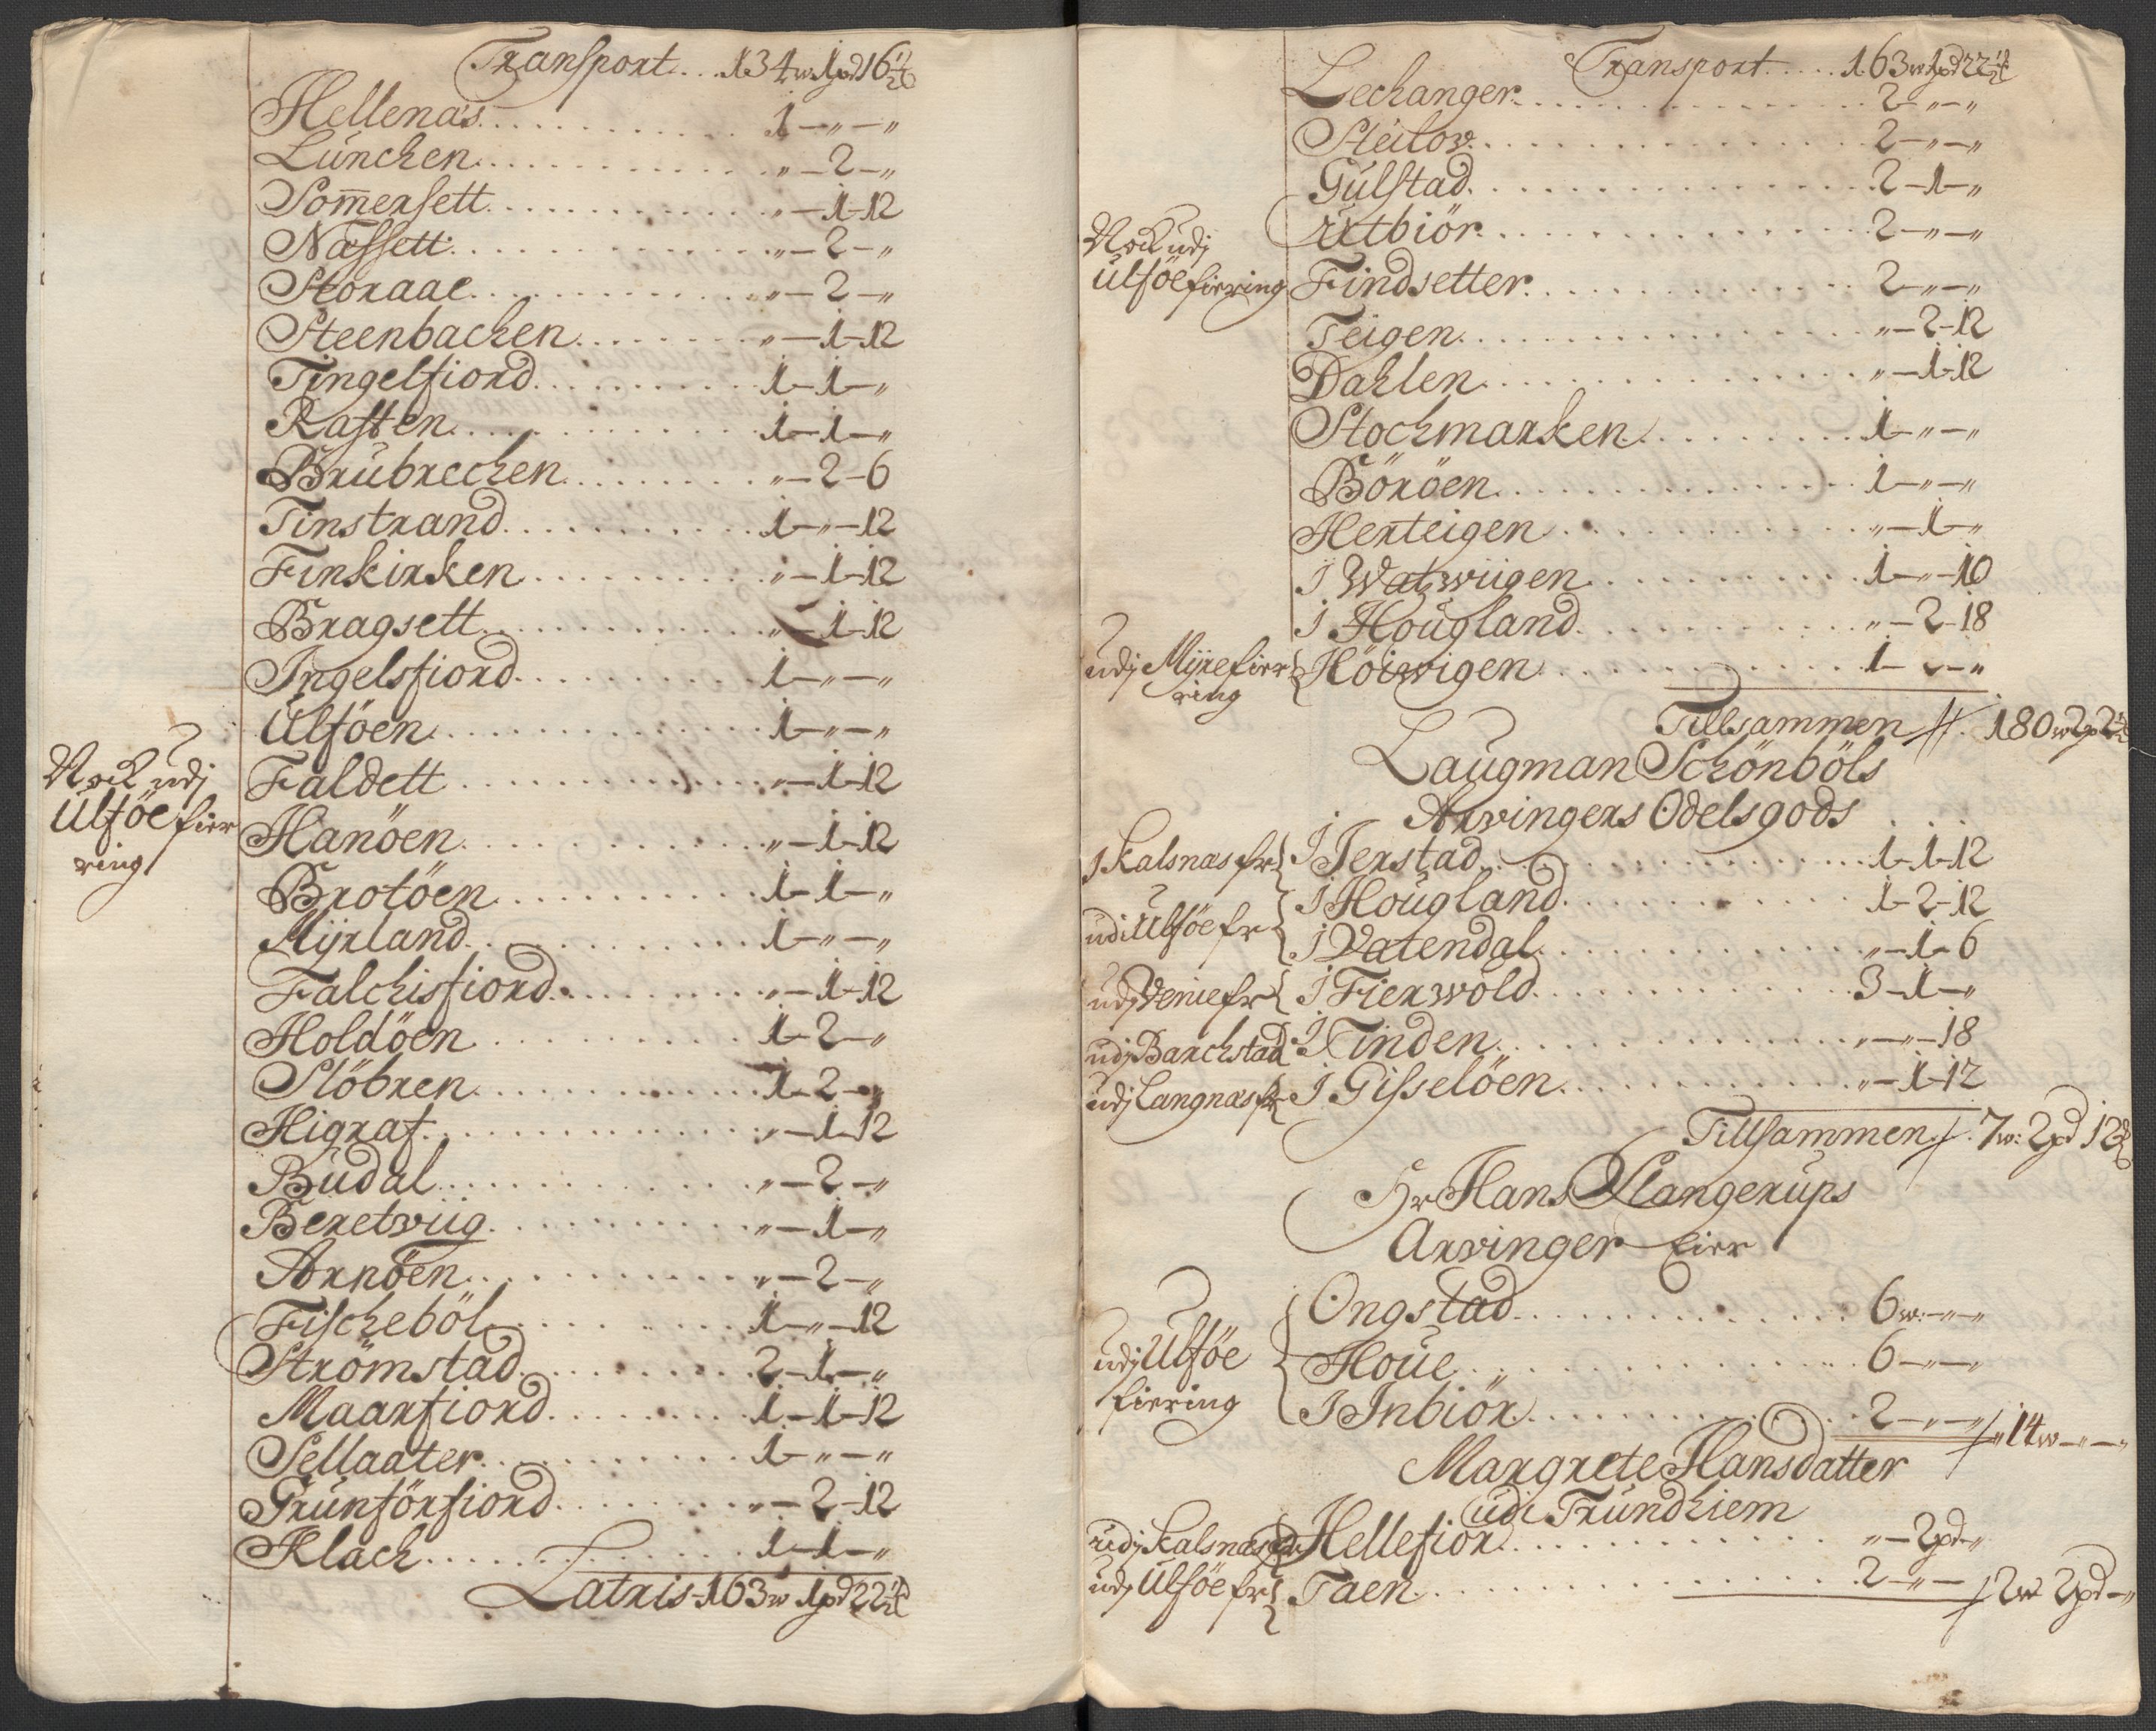 Transport. . . 134w 1pd 16½
Hellenas. . . 1 — „ — „
Lünchen. . . „ — 2 — „
Som̄ersett. . . „ — 1 — 12
Næssett. . . „ — 2 — „
Storaae. . . „ — 2 — „
Steenbachen. . . „ — 1 — 12
Tingelfiord. . . 1 — 1 — „
Raften. . . 1 — 1 — „
Brübrechen. . . „ — 2 — 6
Tinstrand. . . 1 — „ — 12
Finkirken. . . „ — 1 — 12
Bragsett. . . „ — 1 — 12
Ingelsfiord. . . 1 — „ — „
Ulföen. . . 1 — „ — „
Nock udj
Ulföe fier
ring
Faldett. . . „ — 1 — 12
Hanöen. . . „ — 1 — 12
Brotöen. . . 1 — 1 — „
Mÿrland. . . 1 — „ — „
Falchisfiord. . . „ — 1 — 12
Holdöen. . . 1 — 2 — „
Slöbren. . . 1 — 2 — „
Higraf. . . „ — 1 — 12
Büdal. . . „ — 2 — „
Beretwüg. . . „ — 1 — „
Arnöen. . . „ — 2 — „
Fischeböl. . . 1 — „ — 12
Strömstad. . . 2 — 1 — „
Maarfiord. . . 1 — 1 — 12
Sellaater. . . 1 — „ — „
Grunförfiord. . . „ — 2 — 12
Klach. . . 1 — 1 — „
Latris 163w 1pd 22½
Transport. . . 163w 1pd 22½
Lechanger. . . 2 — „ — „
Steilov. . . 2 — „ — „
Gülstad. . . 2 — 1 — „
Utbiör. . . 2 — „ — „
Nock udj
Ulföe fierring
Findsetter. . . 2 — „ — „
Teigen. . . „ — 2 — 12
Dahlen. . . „ — 1 — 12
Stochmarken. . . 1 — „ — „
Böröen. . . 1 — „ — „
Herteigen. . . „ — 1 — „
J Watwiigen. . . 1 — „ — 10
J Hougland. . . „ — 2 — 18
udj Mÿrefier
ring
Höiwigen. . . 1 — „ — „
Tillsammen //. 180w 2p 2½
Laugman Schönböls
Arvingers Odelsgods
J Kalsnæs fr J Jerstad. . . 1 — 1 — 12
udi Ulföe fr J Hougland. . . 1 — 2 — 12
J Vatendal. . . „ — 1 — 6
udj Venie fr J Fierwold. . . 3 — 1 — „
udj Barchstad J Tinden. . . „ — „ — 18
udj Langnæs fr J Gisselöen. . . „ — 1 — 12
Tillsammen /. 7w: 2pd 12
Hr Hans Slangerups
Arvinger Eier
udj Ulföe
fierring
Ongstad. . . 6w: — „ — „
Houe. . . 6 — „ — „
J Inbiör. . . 2 — „ — „ / 14w — „ — „
Margrete Hansdatter
udi Trundhiem
udj Kalsnæs fr Hellefior. . . „ — 2pd — „
udj Ulföe fr Taen. . . 2 — „ — / 2w 2pd — „